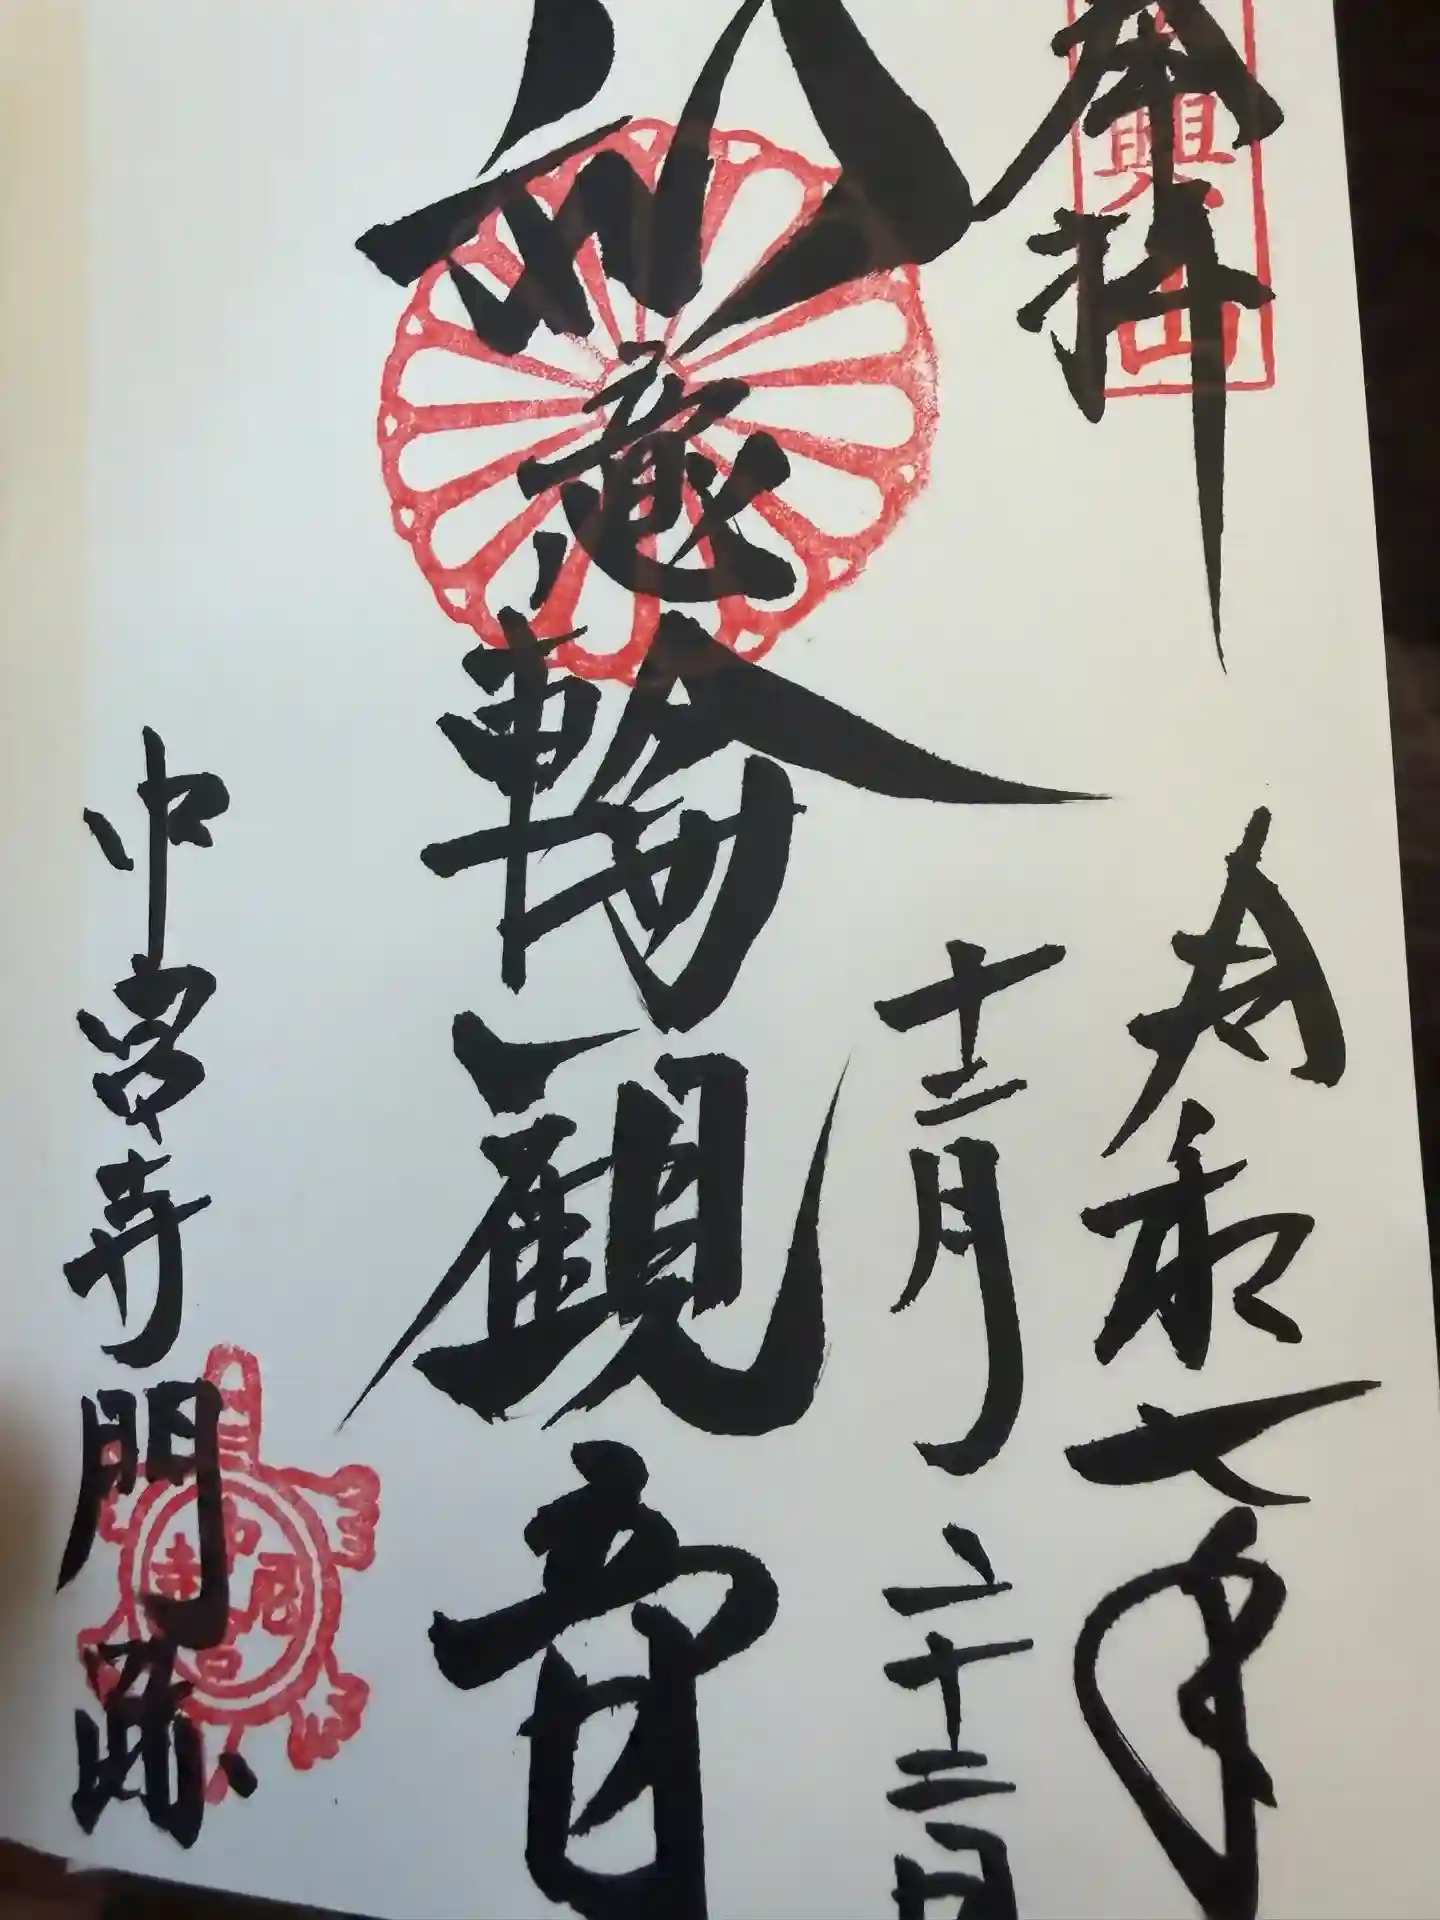 奉拝
興山
令和七年
十二月二十二日
如意輪観音
中宮寺門跡